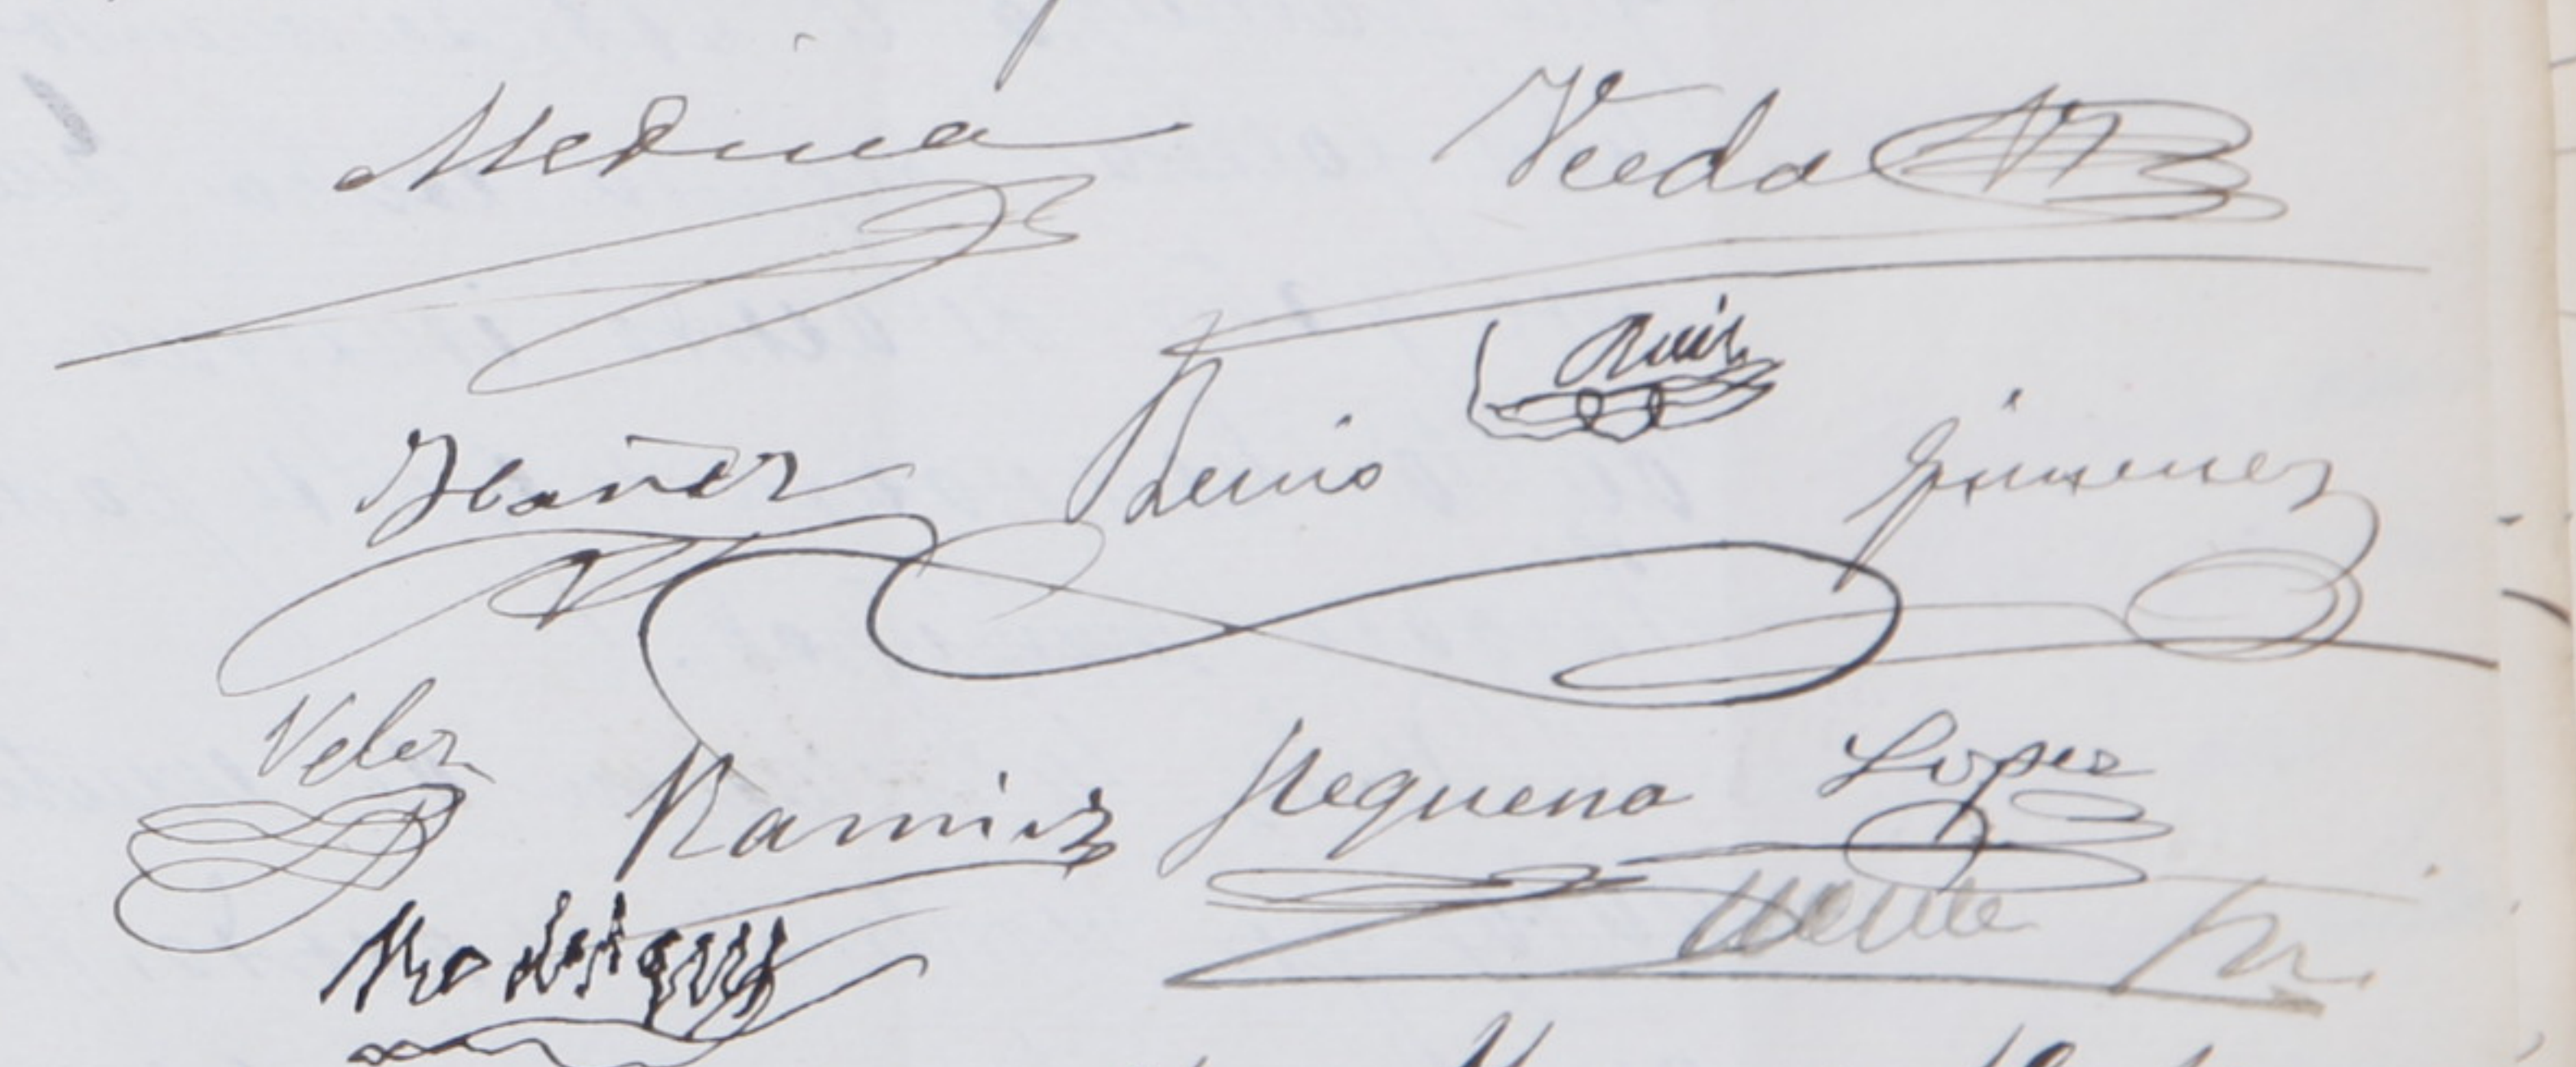 Medina Vieda
Ruiz
Ibañez Remio Gimenez
Velez Ramirez Requena Lopez
Rodrigues